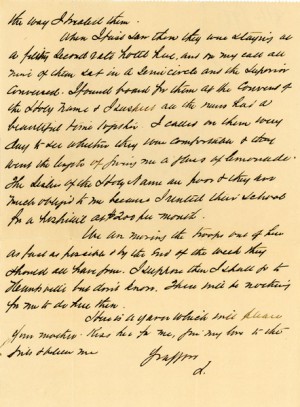 the way I treated them.
When I first saw them they were staying at
a filthy second rate hotel here, and on my call all
nine of them sat in a semicircle and the Superior
conversed. I found board for them at the Convent of
the Holy Name & I all the nuns had a
beautiful time together. I called on them every
day to see whether they were comfortable & they
went the length of giving me a glass of lemonade.
The Sisters of the Holy Name are poor & they are
much obliged to me because I rented their School
for a hospital at $200 per month.
We are moving the troops out of here
as fast as possible & by the end of the week they
should all have gone. I suppose then I shall go to
Huntsville but don't know. There will be nothing
for me to do here then.
Here is a yarn which will please
your mother. her for me, give my love to the
girls & believe me